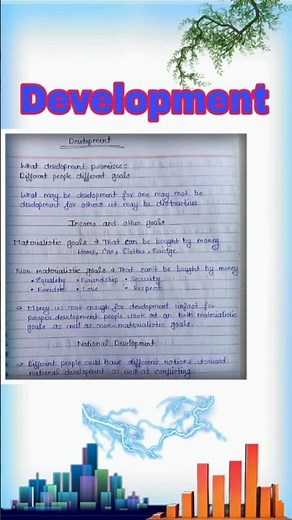 Development
Development
What development promises:
Different people different goals
What may be development for one may not be
development for others it may be distructive.
Income and other goals
Materialistic goals → That can be bought by money
Home, Car, Clothes, Fridge.
Non-materialistic goals → That can't be bought by money
• Equality • Friendship • Security
• Freedom • Love • Respect
→ Money is not enough for development infact for
proper development people look at on both materialistic
goals as well as non-materialistic goals.
National Development
→ Different people could have different notions toward
national development as well as conflicting.